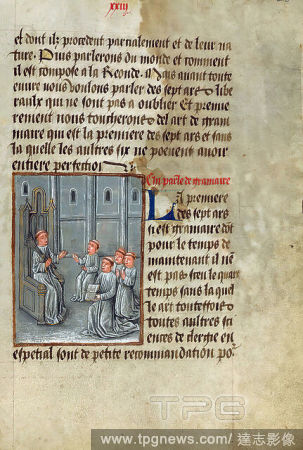 xxiii
et dont ilz procedent parcialement et de leur na
ture. Puis parlerons du monde et comment
il est compose a la Reonde. Mais auant toute
euure nous voulons parler des sept ars libe
raulx qui ne sont pas a oublier Et premie
rement nous toucherons del art de gram
maire qui est la premiere des sept ars et sans
la quelle les aultres six ne peuent auoir
entiere perfection
La premiere
des sept ars
si est gramaire dōt
pour le temps de
maintenant il nē
est pas sceu le quart
temps sans la quel
le art touteffois
toutes aultres sci
ences de clergie en
especial sont de petite recommandation po
TPG
www.tpgnews.com/達志影像